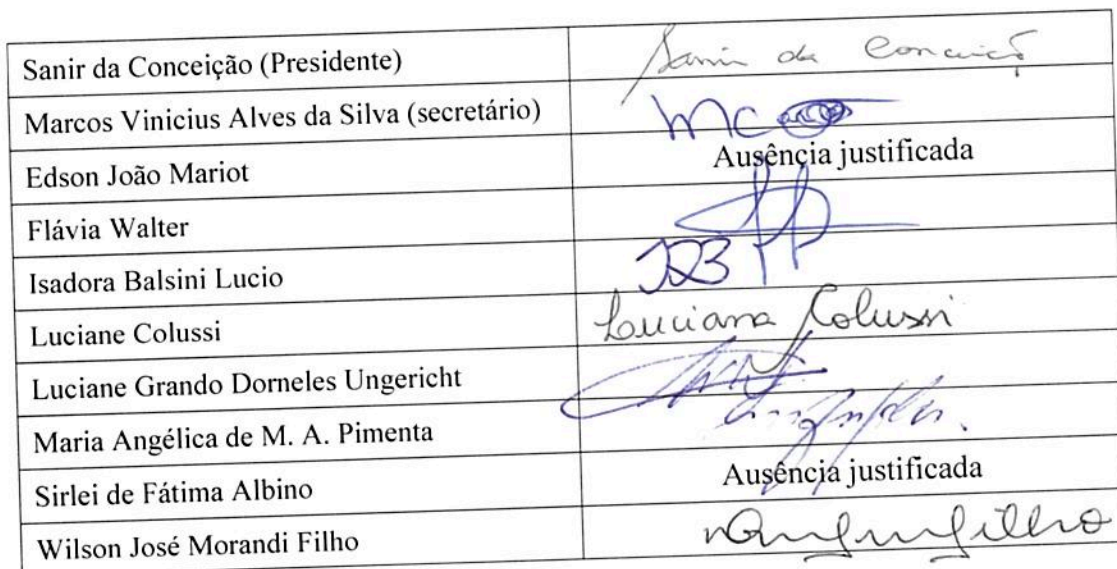 Sanir da Conceição (Presidente) Sanir da Conceição
Marcos Vinicius Alves da Silva (secretário)
Edson João Mariot Ausência justificada
Flávia Walter
Isadora Balsini Lucio
Luciane Colussi Luciana Colussi
Luciane Grando Dorneles Ungericht
Maria Angélica de M. A. Pimenta
Sirlei de Fátima Albino Ausência justificada
Wilson José Morandi Filho